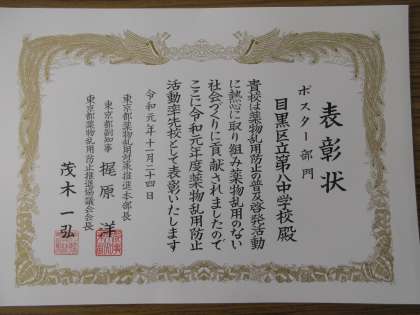 表彰状
ポスター部門
目黒区立第八中学校 殿
貴校は薬物乱用防止の普及啓発活動
に熱心に取り組み薬物乱用のない
社会づくりに貢献されましたので
ここに令和元年度薬物乱用防止
活動率先校として表彰いたします
令和元年十一月二十四日
東京都薬物乱用対策推進本部長
東京都副知事 梶原 洋
東京都薬物乱用防止推進協議会会長
茂木 一弘